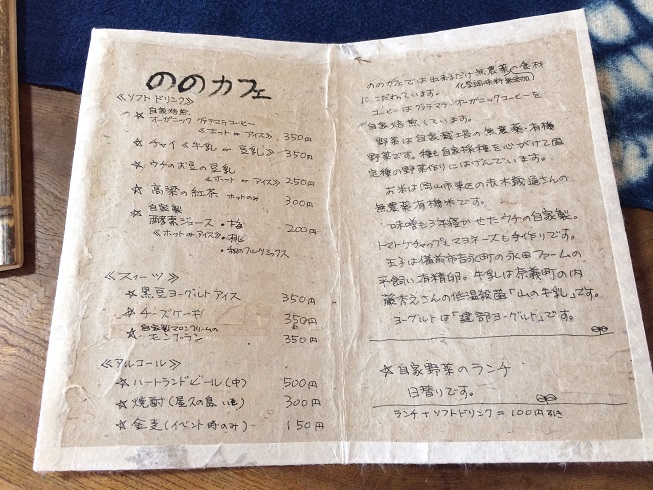 ののカフェ
≪ソフトドリンク≫
☆ 自家焙煎
オーガニック グァテマラコーヒー
≪ホット or アイス≫ 350円
☆ チャイ≪牛乳 or 豆乳≫ 350円
☆ ウチのお豆の豆乳
≪ホット or アイス≫ 250円
☆ 高梁の紅茶 ホットのみ 300円
☆ 自家製
酵素ジュース・梅 200円
≪ホット or アイス≫・桃
・和のフルーツミックス
≪スィーツ≫
☆ 黒豆ヨーグルトアイス 350円
☆ チーズケーキ 350円
☆ 自家製マロンクリームの
モンブラン 350円
≪アルコール≫
☆ ハートランドビール(中) 500円
☆ 焼酎(屋久の島 いも) 300円
☆ 金麦(イベント時のみ) 150円
ののカフェでは出来るだけ無農薬の食材
(化学調味料無添加)
にこだわっています。
コーヒーはグァテマラ・オーガニックコーヒーを
自家焙煎しています。
野菜は自家栽培の無農薬・有機
野菜です。種も自家採種を心がけて固
定種の野菜作りにはげんでいます。
お米は岡山市東区の赤木歳通さんの
無農薬有機米です。
味噌も3年寝かせたウチの自家製。
トマトケチャップもマヨネーズも手作りです。
玉子は備前市吉永町の永田ファームの
平飼い有精卵。牛乳は奈義町の内
藤 さんの低温殺菌「山の牛乳」です。
ヨーグルトは「建部ヨーグルト」です。
☆ 自家野菜のランチ
日替りです。
ランチ+ソフトドリンク=100円引き